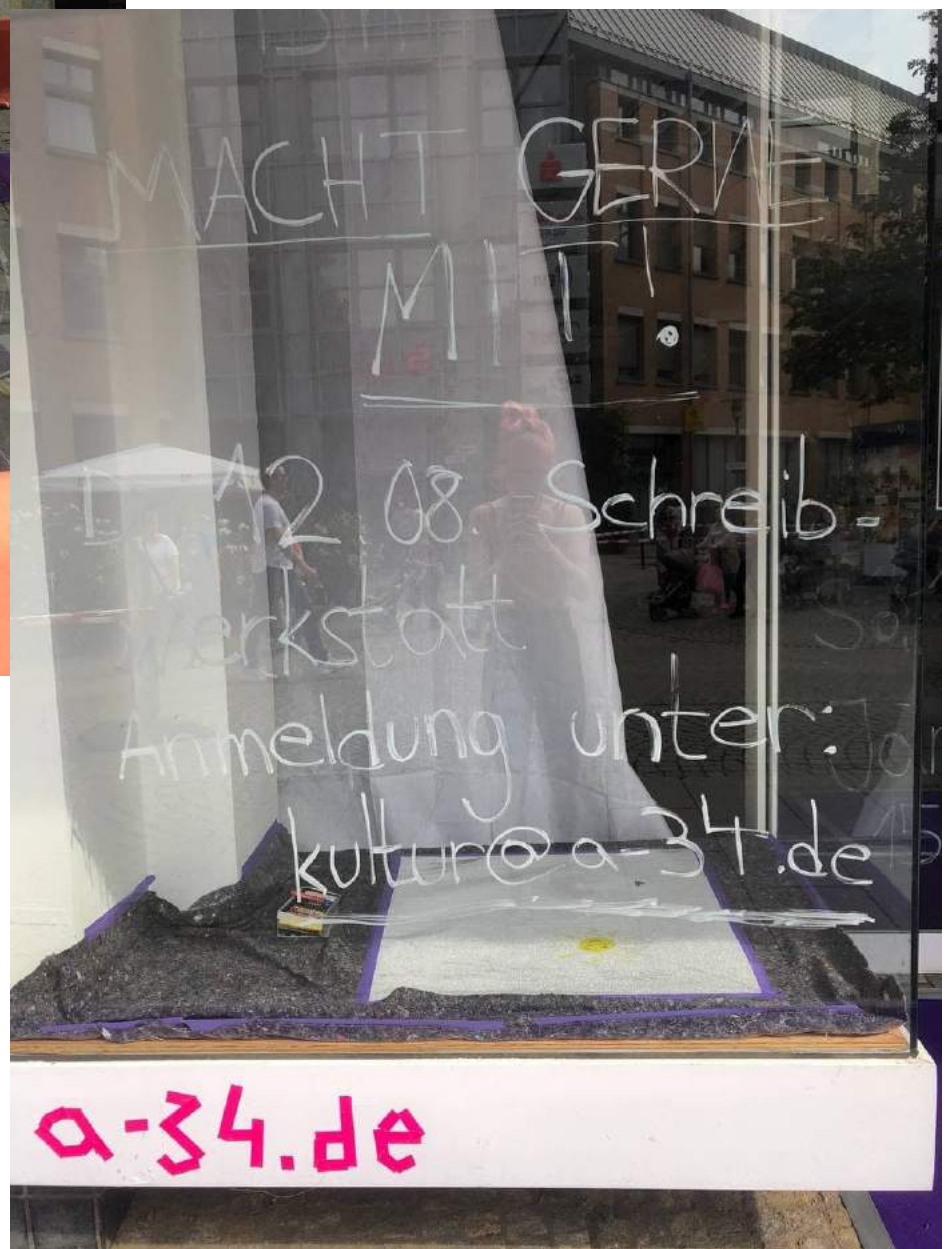 MACHT GERNE
MIT!
12 08. Schreib-
werkstatt
Anmeldung unter:
kultur@a-34.de
a-34.de